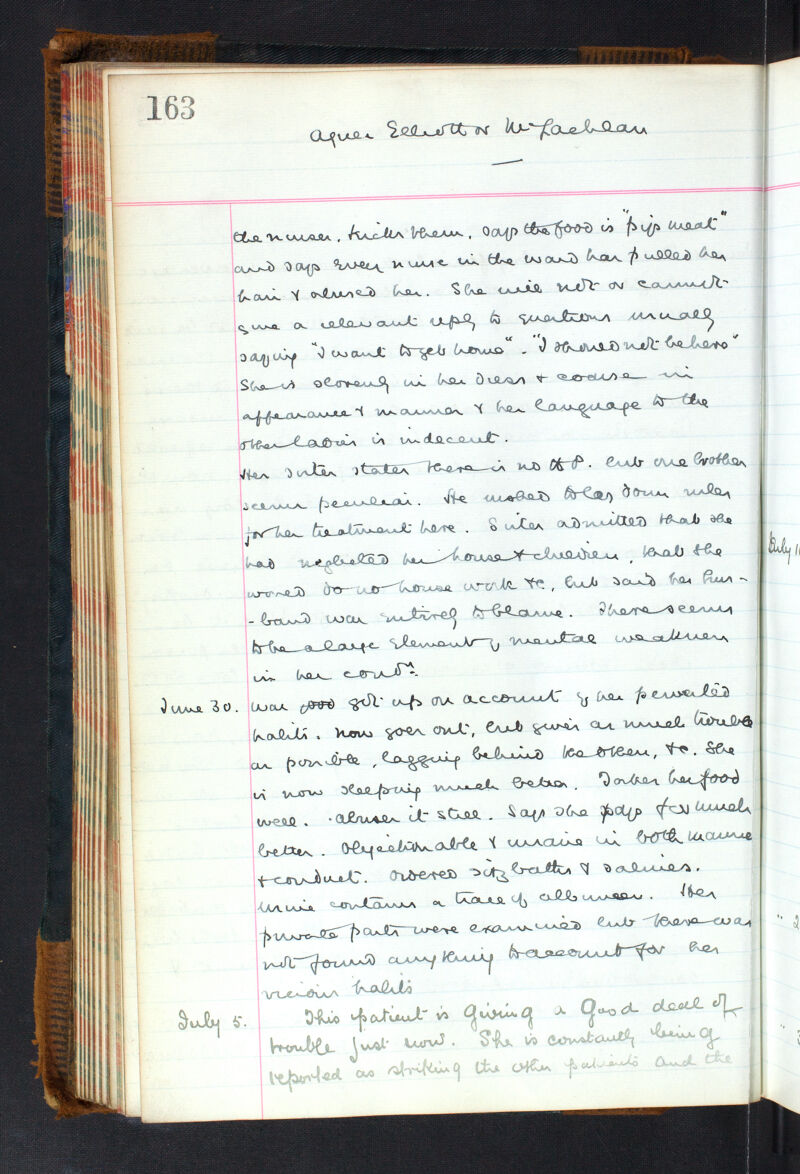 163
Agnes Elliott or McLachlan
the nurses, kicks them, says the food is "pigs meat"
and says every nurse in the ward has pulled her
hair & abused her. She will not or cannot
give a relevant reply to questions usually
saying "I want to get home". "I should not be here"
She is slovenly in her dress & coarse in
appearance & manner & her language to the
other ladies is indecent.
Her sister states there is no H P. but one brother
seems peculiar. He wished to lay down rules
for her treatment here. Sister admitted that she
had neglected her house & children, that she
would do no house work &c, but said her hus-
-band was entirely to blame. There seems
to be a large element of mental weakness
in her condn.
June 30. Was got up on account of her perverted
habits. Now goes out, but gives as much trouble
as possible, lagging behind the others, &c. She
is now sleeping much better. Takes her food
well. abuses it still. Says she pays for much
better. Objectionable & insane in both manner
& conduct. Ordered sitz baths & salines.
Urine contains a trace of albumen. Her
private parts were examined but there was
not found anything to account for her
vicious habits
July 5. This patient is giving a good deal of
trouble just now. She is constantly being
reported as striking the other patients and the
July 1
" 2
" 3